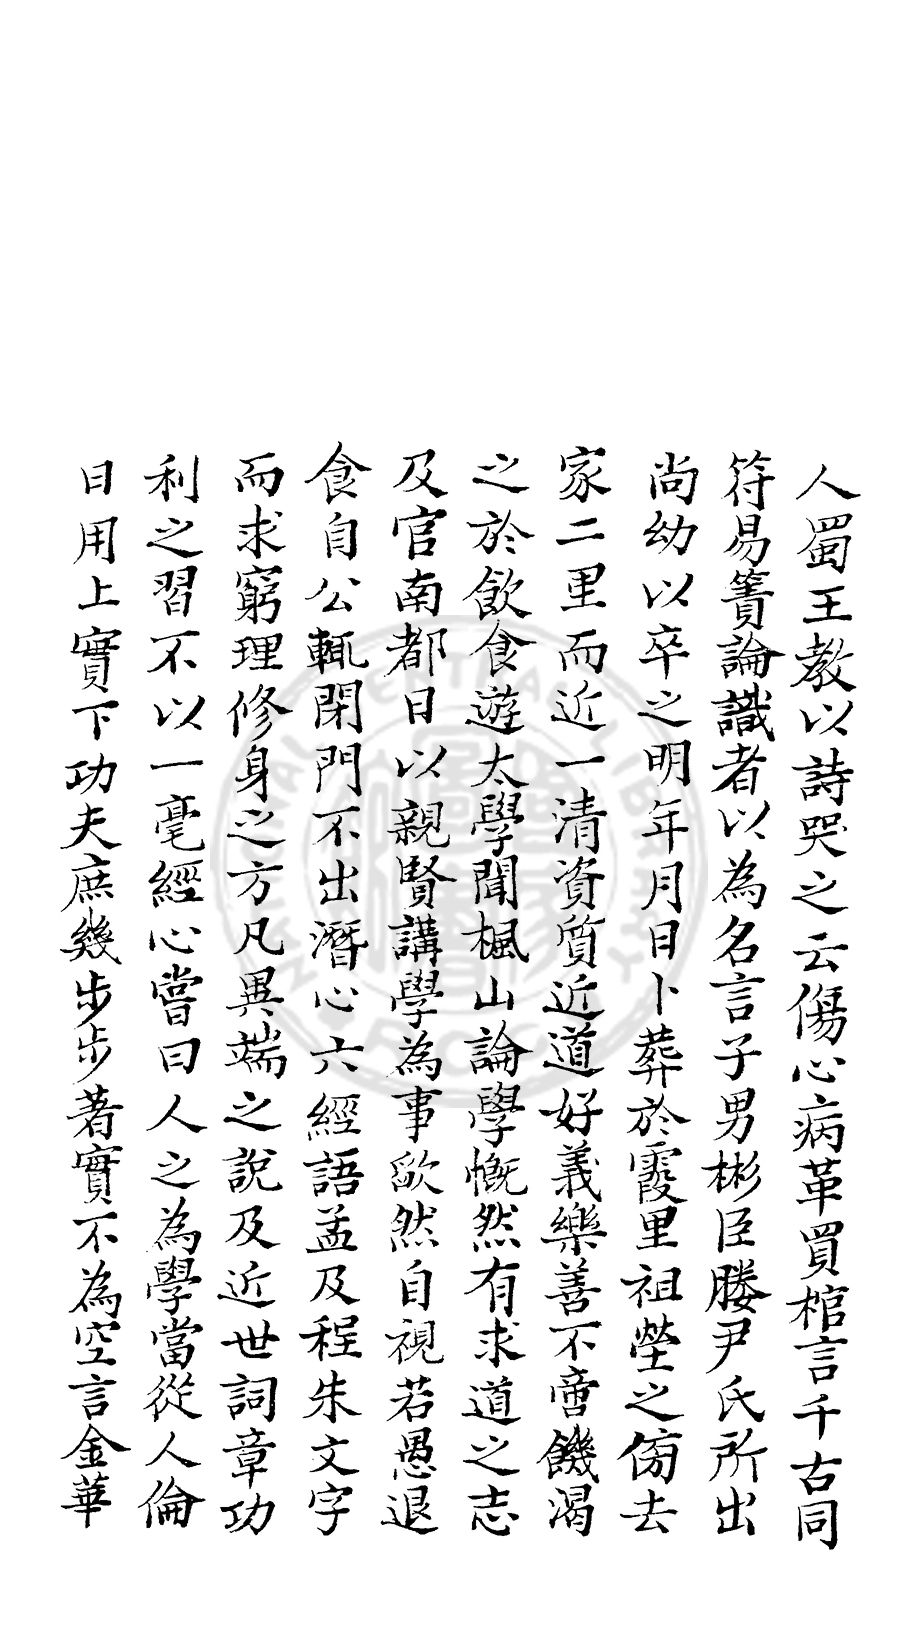 人蜀王教以詩哭之云傷心病革買棺言千古同
符易簀論識者以為名言子男彬臣媵尹氏所出
尚幼以卒之明年月日卜葬於霞里祖塋之傍去
家二里而近一清資質近道好義樂善不啻饑渴
之於飲食遊太學聞楓山論學慨然有求道之志
及官南都日以親賢講學為事欿然自視若愚退
食自公輒閉門不出潛心六經語孟及程朱文字
而求窮理修身之方凡異端之說及近世詞章功
利之習不以一毫經心嘗曰人之為學當從人倫
日用上實下功夫庶幾步步著實不為空言金華